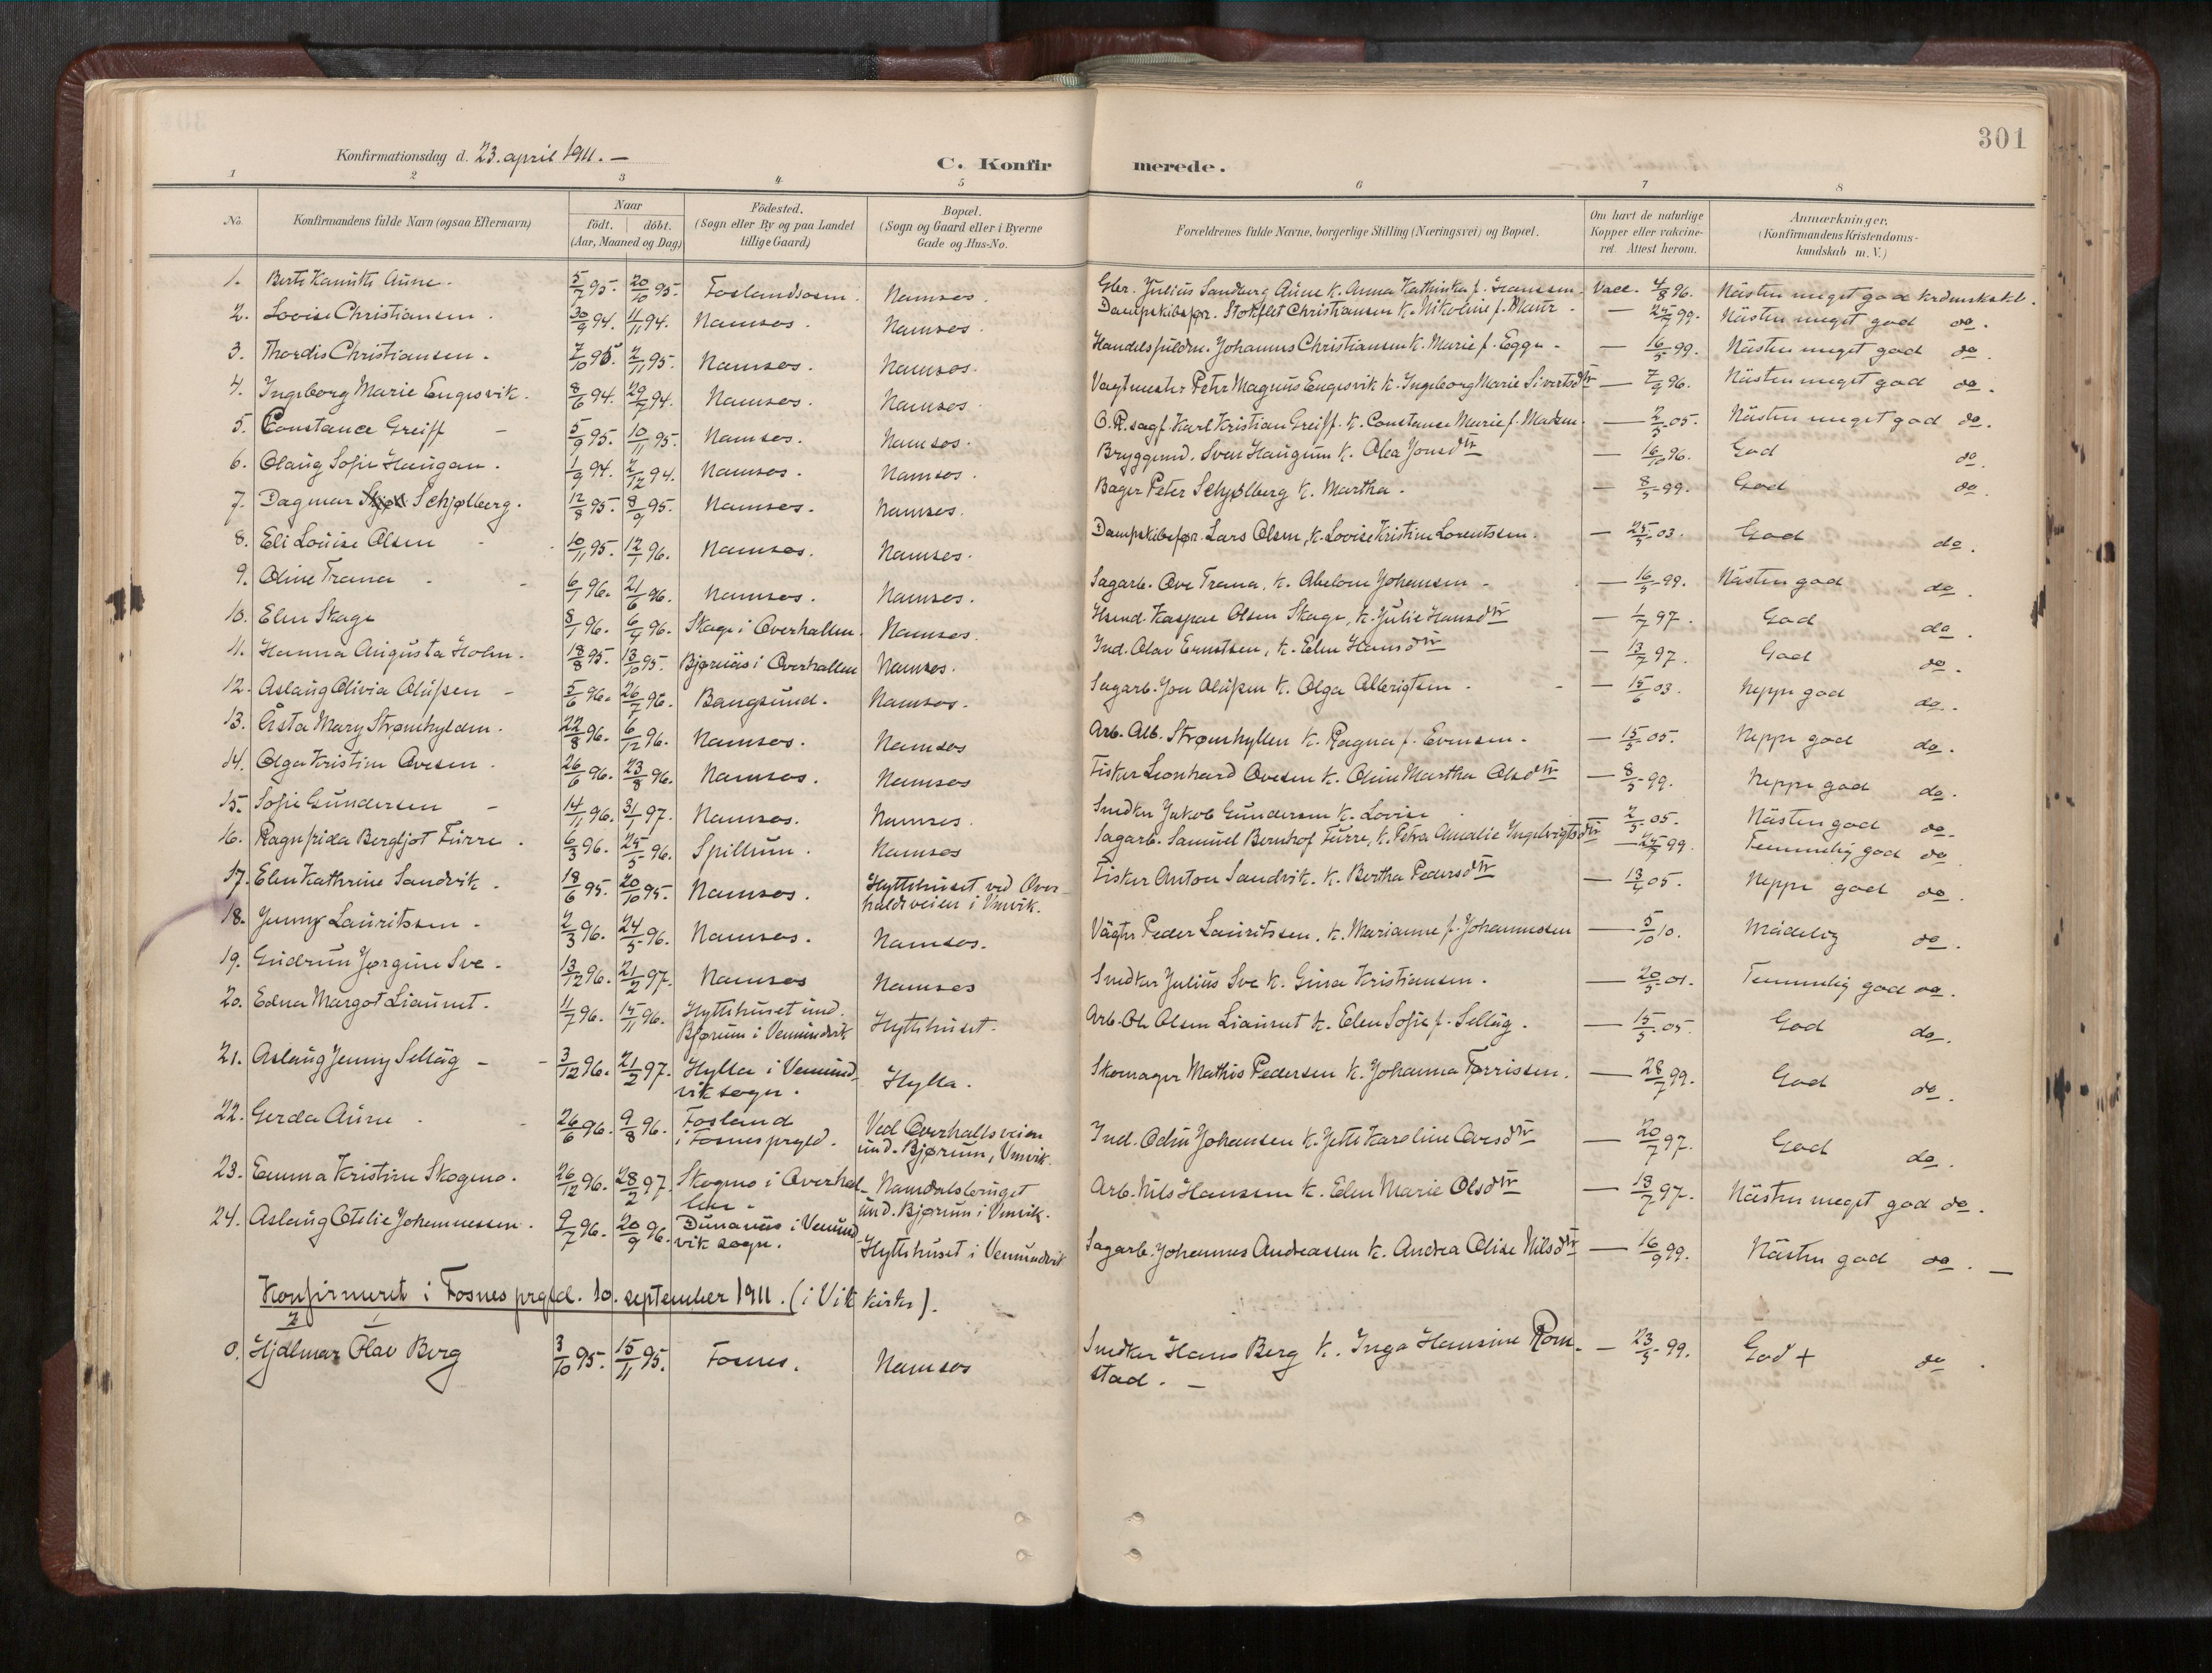 301
Konfirmationsdag d. 23. april 1911. —
C. Konfirmerede.
1 2 3 4 5 6 7 8
No. Konfirmandens fulde Navn (ogsaa Efternavn) Naar født. døbt. (Aar, Maaned og Dag) Födested. (Sogn eller By og paa Landet tillige Gaard) Bopæl. (Sogn og Gaard eller i Byerne Gade og Hus-No. Forældrenes fulde Navne, borgerlige Stilling (Næringsvei) og Bopæl. Om havt de naturlige Kopper eller vakcineret. Attest herom. Anmærkninger, (Konfirmandens Kristendomskundskab m. V.)
1. Aune. 5/7 95. 20/10 95. Foslandsosen. Namsos. Gbr. Julius Sandberg Aune k. Anna Kathinka f. Hansen. Vacc. 4/8 96. Nästen meget god krdmskskb.
2. Lovise Christiansen. 30/9 94. 11/11 94. Namsos. Namsos. Dampskibsfør. Stokflet Christiansen k. Nikoline f. — 25/7 99. Nästen meget god do.
3. Thordis Christiansen. 7/10 95 2/11 95. Namsos. Namsos. Johannes Christiansen k. Marie f. Egge — 16/5 99. Nästen meget god do.
4. Ingeborg Marie Engesvik. 8/6 94. 29/7 94. Namsos. Namsos. Vagtmester Peter Magnus Engesvik k. Ingeborg Marie Sivertsdtr — 7/9 96. Nästen meget god do.
5. Constance Greiff — 5/9 95. 10/11 95. Namsos. Namsos. O.R.sagf. Karl Kristian Greiff. k. Constance Marie f. Madsen. — 2/5 05. Nästen meget god do.
6. Olaug Sofie Haugan. 1/9 94. 2/12 94. Namsos. Namsos. Bryggemd. Sven Haugum k. Olea Jonsdtr — 16/10 96. God do.
7. Dagmar Schjølberg. 12/8 95. 8/9 95. Namsos. Namsos. Bager Peter Schjølberg k. Martha. — 8/5 99. God do.
8. Eli Louise Olsen 10/11 95. 12/1 96. Namsos. Namsos. Dampskibsfør. Lars Olsen, k. Lovise Kristine Lorentssen. — 25/5 03. God do.
9. Oline Trana 6/1 96. 21/6 96. Namsos. Namsos. Sagarb. Ove Trana, k. Abelone Johansen — 16/5 99. Nästen god do.
10. Elen Skage 8/1 96. 6/4 96. Skage i Overhallen. Namsos. Hsmd. Kaspar Olsen Skage, k. Julie Hansdtr — 1/7 97. God do.
11. Hanna Augusta Holm. 18/8 95. 13/10 95. Bjørnås i Overhallen Namsos. Ind. Olav Ernstsen, k. Elen Hansdtr — 13/7 97. God do.
12. Aslaug Olivia Olufsen — 5/6 96. 26/7 96. Bangsund. Namsos. Sagarb. Jon Olufsen k. Olga Albrigtsen. — 15/6 03. Neppe god do.
13. Åsta Mary Strømhylden. 22/8 96. 6/12 96. Namsos. Namsos Arb. Alb. Strømhyllen k. Ragna f. Evensen. — 15/5 05. Neppe god do.
14. Olga Kristine Ovesen. 26/6 96. 23/8 96. Namsos. Namsos Fisker Leonhard Ovesen k. Oline Martha Olsdtr — 8/5 99. Neppe god do.
15. Sofie Gundersen — 14/11 96. 31/1 97. Namsos. Namsos. Snedker Jakob Gundersen k. Lovise 2/5 05. Nästen god do.
16. Ragnfrida Bergljot Furre. 6/3 96. 25/5 96. Spillum. Namsos Sagarb. Samuel Bernhof Furre, k. Petra Amalie Ingebrigtsdtr — 25/7 99. Temmelig god do
17. Elen Kathrine Sandvik. 18/6 95. 20/10 95. Namsos. Hyttehuset ved Overhaldsveien i Vmvik. Fisker Anton Sandvik. k. Bertha Pedersdtr — 05. Neppe god do.
18. Jenny Lauritssen. 2/3 96. 24/5 96. Namsos. Namsos. Vägter Peder Lauritssen. k. Marianne f. Johannessen — 5/10 10. Mådelig do.
19. Gudrun Jørgine Sve. 13/12 96. 21/2 97. Namsos Namsos Snedker Julius Sve k. Gina Kristiansen. — 20/5 01. Temmelig god do.
20. Edna Margot Liaunet. 11/7 96. 15/11 96. Hyttehuset und. Bjørum i Vemundvik Hyttehuset. Arb. Ol. Olsen Liaunet k. Elen Sofie f. Selläg. — 15/5 05. God do.
21. Aslaug Jenny Selläg — 3/12 96. 21/2 97. Hylla i Vemundvik sogn. Hylla. Skomager Mathis Pedersen k. Johanna Tørrissen. — 28/7 99. God do.
22. Gerda Aune 26/6 96. 9/8 96. Fosland i Fosnes prgld. Ved Overhallsveien und. Bjørum, Vmvik. Ind. Odin Johansen k. Jette Karoline Ovesdtr — 20/7 97. God do.
23. Emma Kristine Skogmo. 26/12 96. 28/2 97. Skogmo i Overhallen. Namdalsbruget und. Bjørum i Vmvik. Arb. Nils Hansen k. Elen Marie Olsdtr — 13/7 97. Nästen meget god do.
24. Aslaug Otelie Johannessen. 9/7 96. 20/9 96. Dunanäs i Vemundvik sogn. Hyttehuset i Vemundvik Sagarb. Johannes Andreassen k. Andrea Olise Nilsdtr — 16/9 99. Nästen god do. —
Konfirmeret i Fosnes prgld. 10. september 1911. (i Vik kirke).
0. Hjalmar Olav Berg 3/10 95. 15/11 95. Fosnes. Namsos Snedker Hans Berg k. Inga Hansine Romstad. — 23/5 99. God + do.